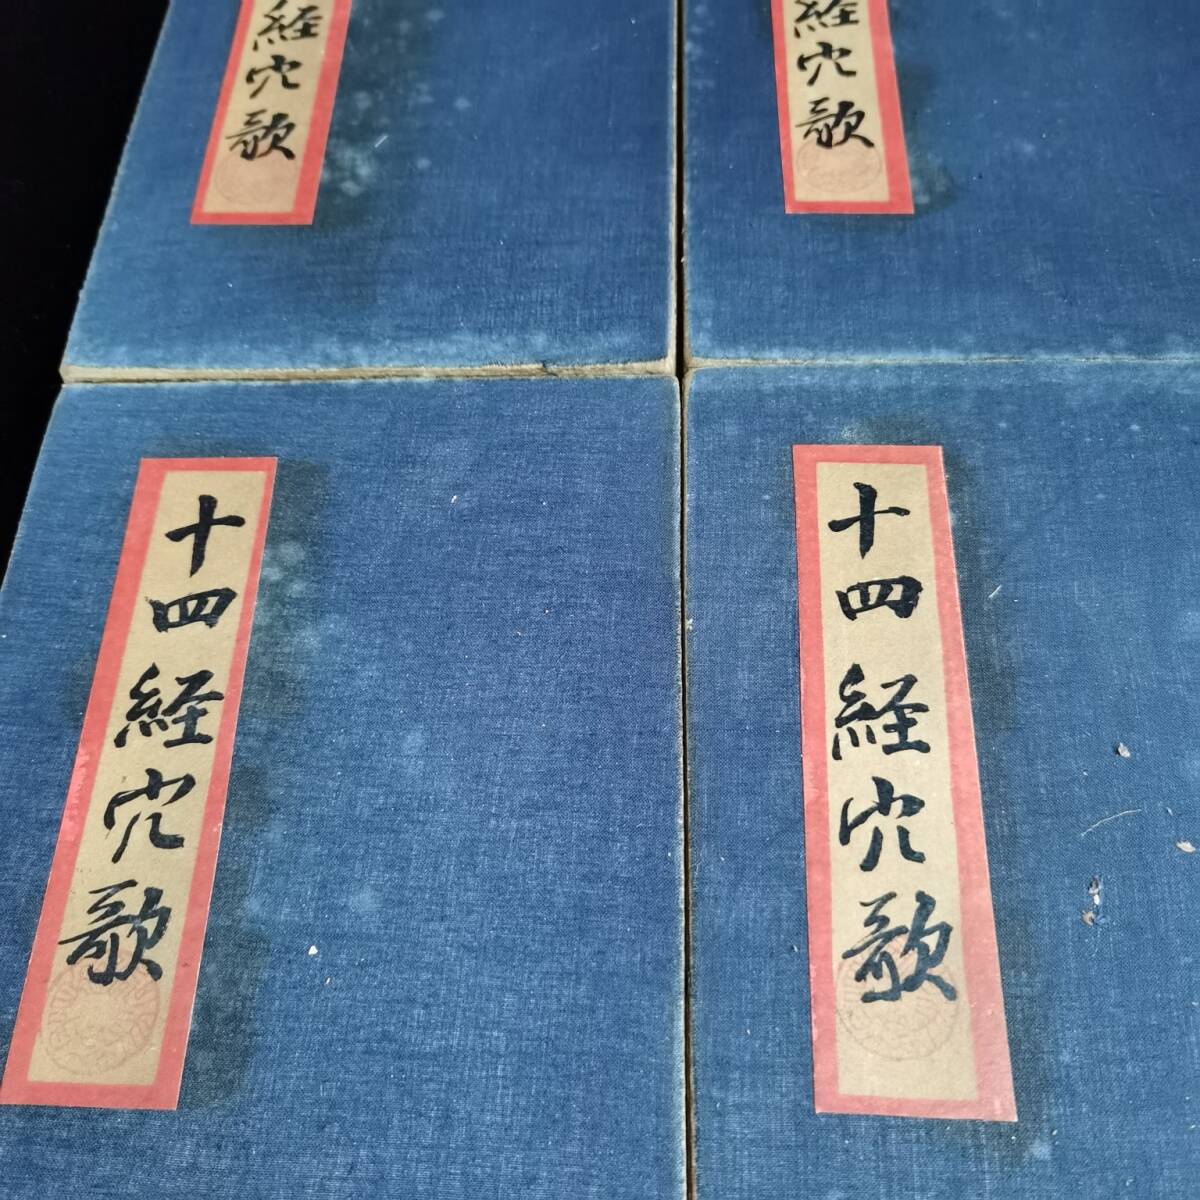 経穴歌
経穴歌
十四経穴歌
十四経穴歌